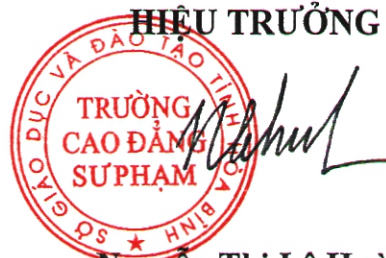 HIỆU TRƯỞNG
SỞ GIÁO DỤC VÀ ĐÀO TẠO TỈNH HÒA BÌNH
TRƯỜNG
CAO ĐẲNG
SƯ PHẠM
Nguyễn Thị Lệ